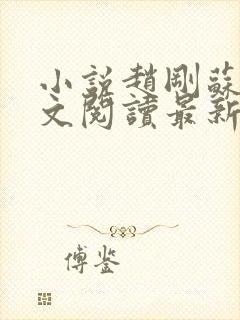 小說趙剛蘇
文閱讀最新
傅鉴